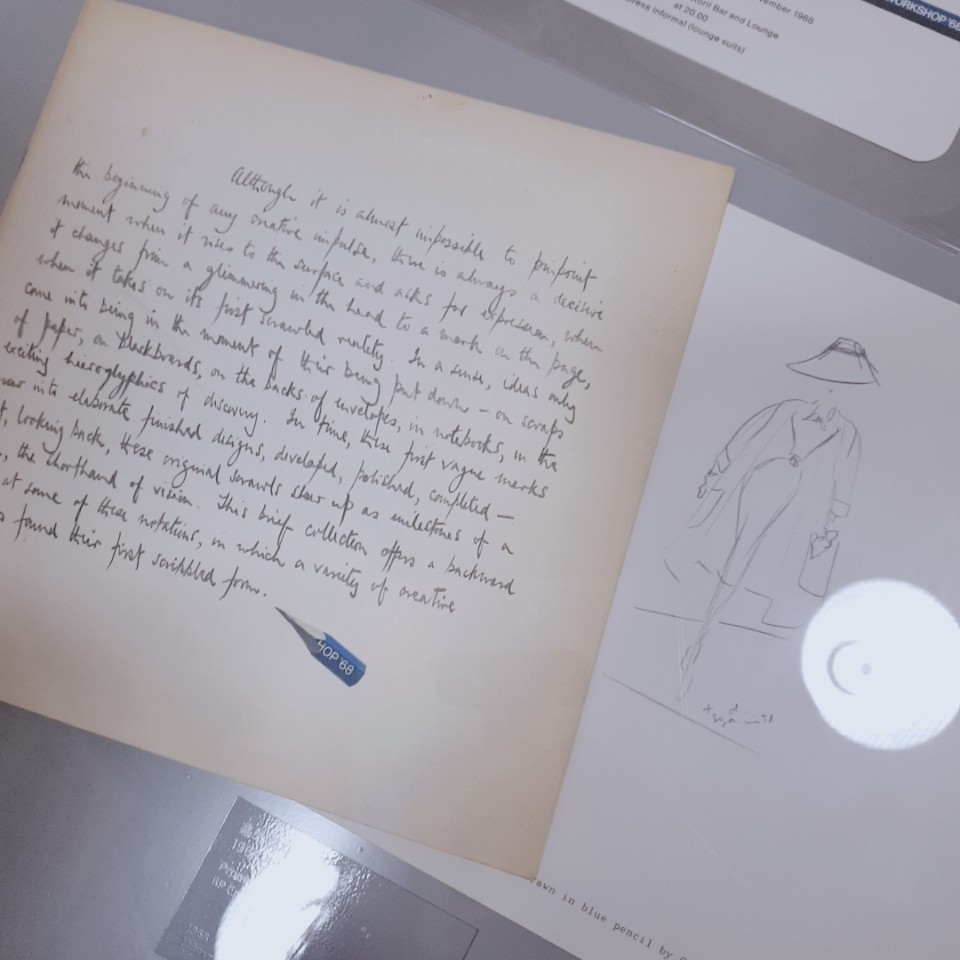 vember 1968
Bar and Lounge
at 20.00
ress informal (lounge suits)
WORKSHOP '68
Although it is almost impossible to pinpoint
the beginning of any creative impulse, there is always a decisive
moment when it rises to the surface and asks for expression, when
it changes from a glimmering in the head to a mark on the page,
when it takes on its first scrawled reality. In a sense, ideas only
come into being in the moment of their being put down – on scraps
of paper, on blackboards, on the backs of envelopes, in notebooks, in the
exciting hieroglyphics of discovery. In time, these first vague marks
into elaborate finished designs, developed, polished, completed –
looking back, these original scrawls show up as milestones of a
the shorthand of vision. This brief collection offers a backward
at some of these notations, in which a variety of creative
found their first scribbled form.
HOP '68
rawn in blue pencil by